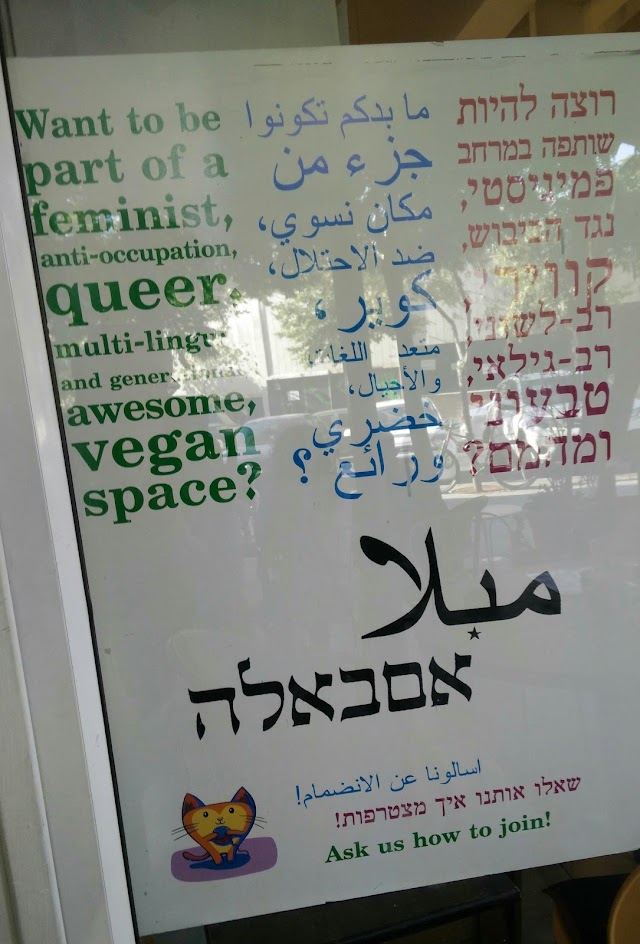 Want to be
part of a
feminist,
anti-occupation,
queer,
multi-lingu
and
awesome,
vegan
space?
ما بدكم تكونوا
جزء من
مكان نسوي،
ضد الاحتلال،
كوير،
متعدد اللغات
والأجيال،
خضري
ورائع؟
רוצה להיות
שותפה במרחב
פמיניסטי,
נגד הכיבוש,
קווירי,
רב-לשוני,
רב-גילאי,
טבעוני
ומהמם?
مبلا
אםבאלה
اسالونا عن الانضمام!
שאלו אותנו איך מצטרפות!
Ask us how to join!